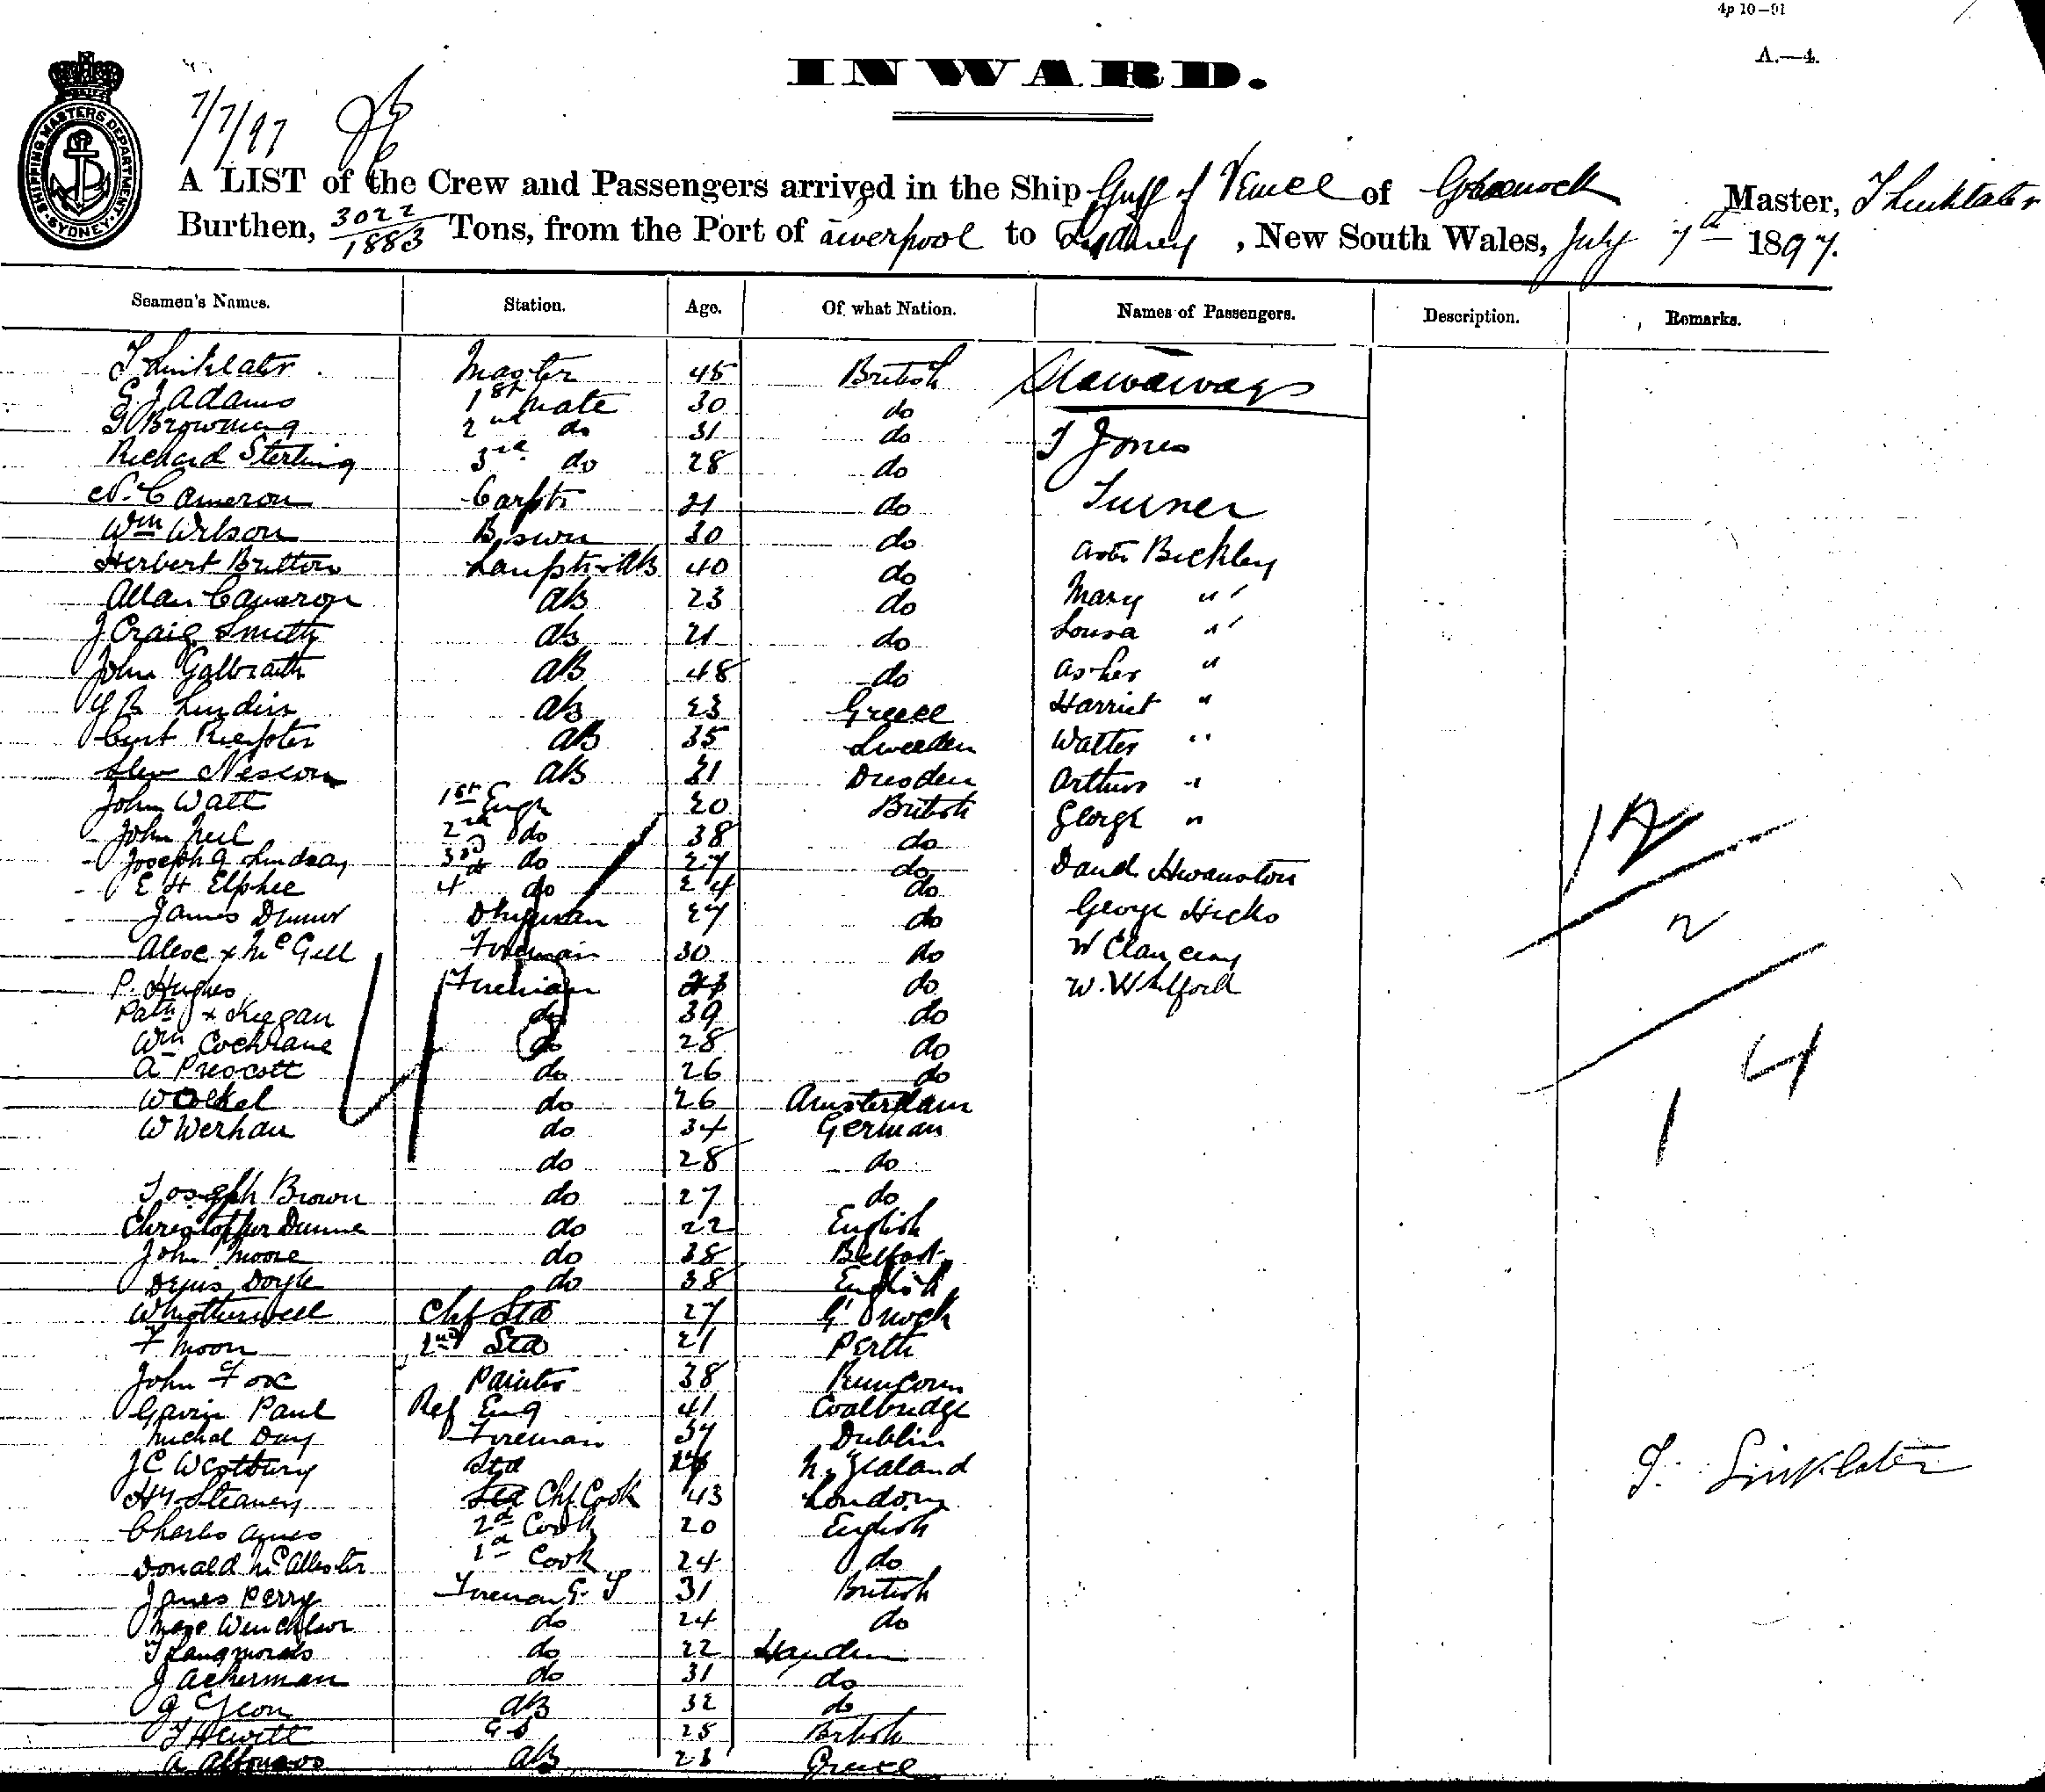 4p 10–91
A.—4.
INWARD.
SHIPPING MASTERS DEPARTMENT
SYDNEY
7/7/97
A LIST of the Crew and Passengers arrived in the Ship Gulf of Venice of Greenock Master, J Linklater
Burthen, 3022/1883 Tons, from the Port of Liverpool to Sydney, New South Wales, July 7th 1897.
Seamen's Names. Station. Age. Of what Nation. Names of Passengers. Description. Remarks.
J Linklater Master 45 British Stowaways
E J Adams 1st Mate 30 do
G Browning 2nd do 31 do J Jones
Richard Sterling 3rd do 28 do
N. Cameron Carptr 21 do Turner
Wm Wilson Bswn 30 do
Herbert Britton Lamptr AB 40 do Bickley
Allan Cameron AB 23 do Mary "
J Craig Smith AB 21 do Lousa "
John Galbraith AB 48 do Asher "
Lundin AB 23 Greece Harriet "
Curt AB 35 Sweeden Walter "
AB 21 Dresden Arthur "
John Watt 1st Engr 20 British George "
John Neil 2nd do 38 do
Joseph A Lindsay 3rd do 27 do David Swanston
E H Elphee 4th do 24 do
James 27 do George Hicks
Alex x McGill Fireman 30 do W Clancey
P. Hughes Fireman do W. Whlford
Patk x Keegan do 39 do
Wm Cochrane do 28 do
A Prescott do 26 do
W do 26 Amsterdam
W Werhau do 34 German
do 28 do
Joseph Brown do 27 do
Christopher Dunne do 22 English
John Moore do 38 Belfast
Denis Doyle do 38 English
W Motherwell Chf Std 27 G'nock
F Moon 2nd Std 21 Perth
John Fox Painter 38 Runcorn
Gavin Paul Ref Eng 41 Coalbridge
Michal Day Fireman 37 Dublin
J C Westbury Std N. Zealand
Hy Steaney Chf Cook 43 London
Charles 2d Cook 20 English
Donald McAllester Cook 24 do
James Perry Fireman G. S 31 British
Max do 24 do
do 22
J Acherman do 31 do
AB 32 do
J Hewitt G S 25 British
A AB 23 Greece
12
2
14
J. Linklater